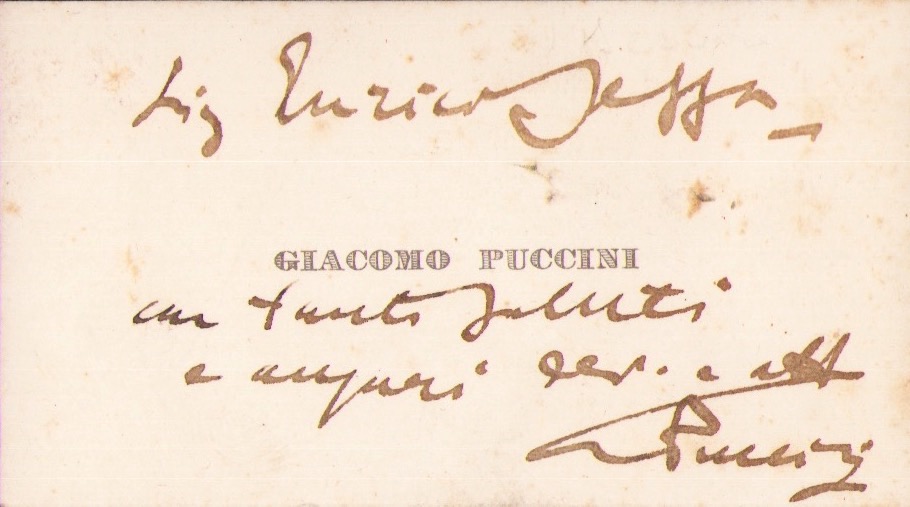 Sig Enrico Sessa
GIACOMO PUCCINI
con tanti saluti
e auguri dev. e aff
GPuccini